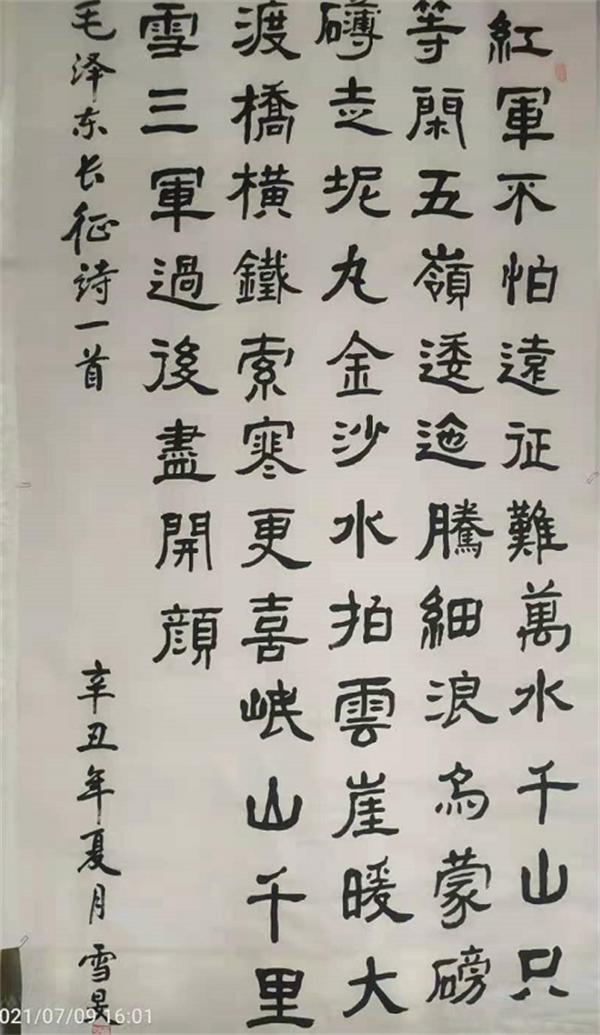 紅軍不怕遠征難萬水千山只
等閑五嶺逶迤騰細浪烏蒙磅
礴走坭丸金沙水拍雲崖暖大
渡橋橫鐵索寒更喜岷山千里
雪三軍過後盡開顏
毛泽东长征詩一首
辛丑年夏月雪
021/07/09 16:01